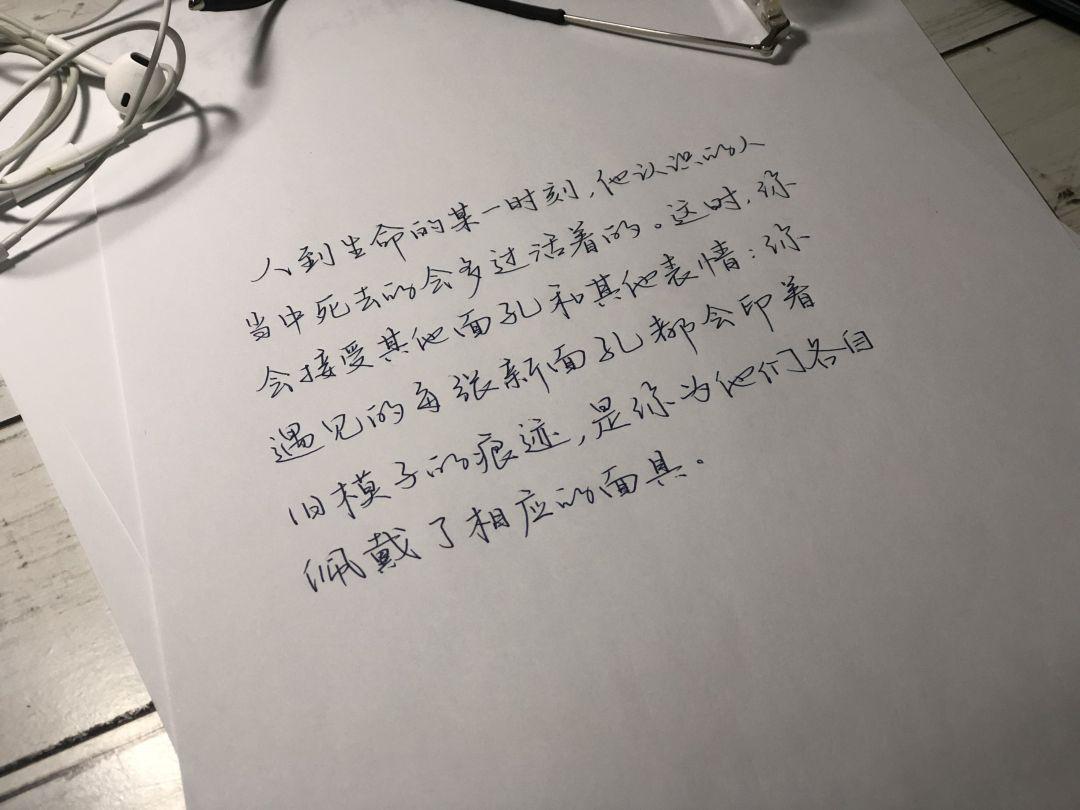 人到生命的某一时刻，他认识的人
当中死去的会多过活着的。这时，你
会接受其他面孔和其他表情：你
遇见的每张新面孔都会印着
旧模子的痕迹，是你为他们各自
佩戴了相应的面具。